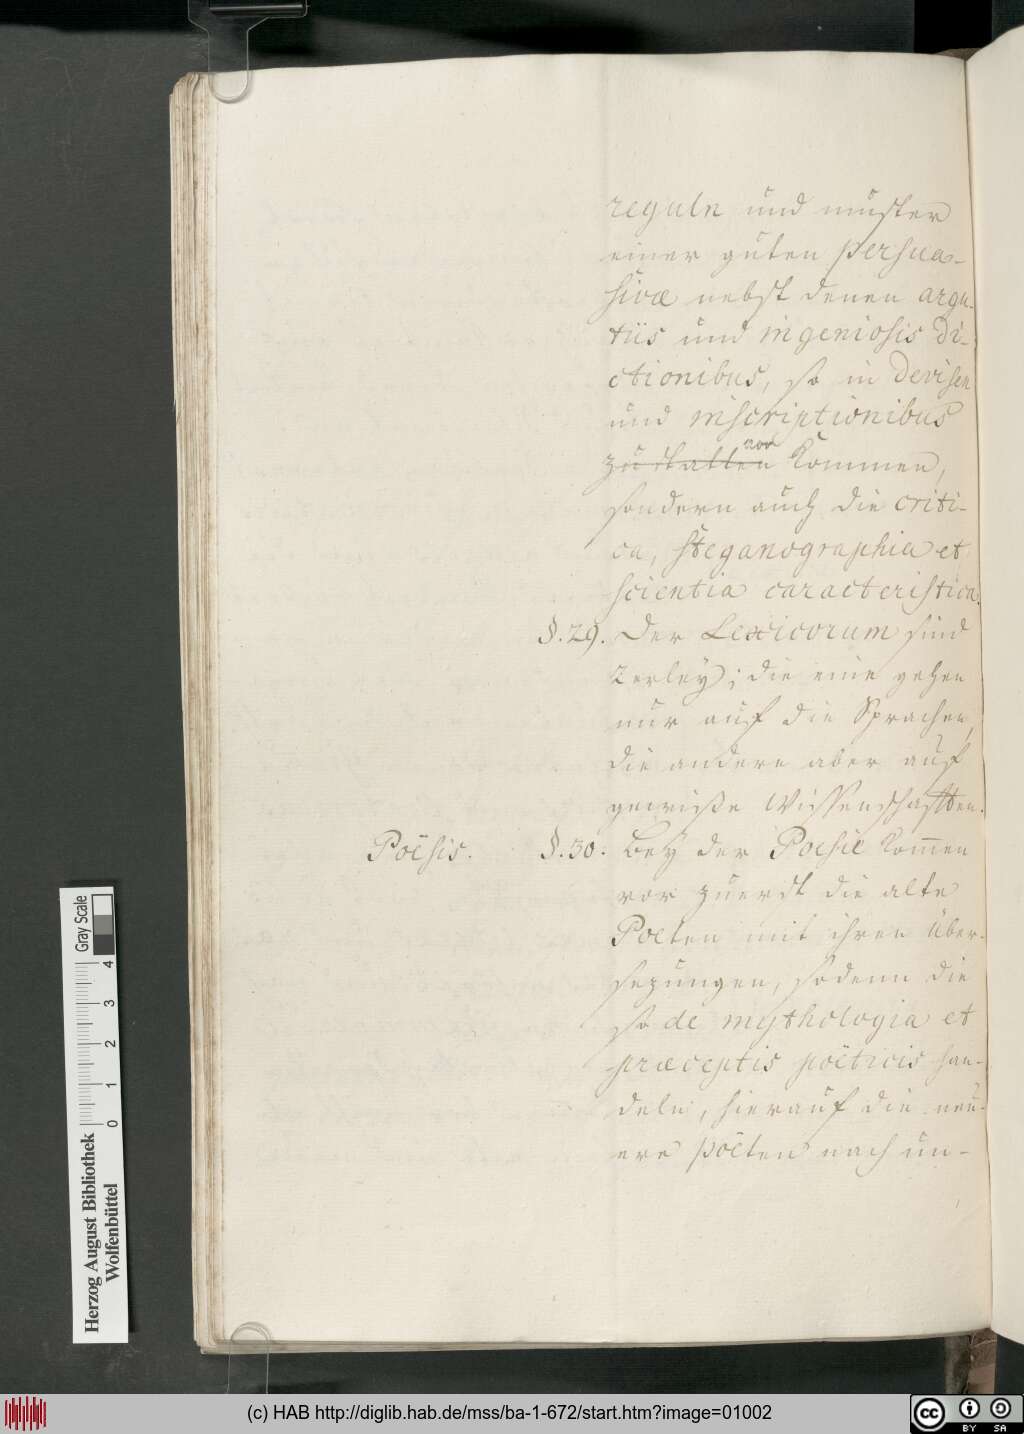 reguln und muster
einer guten persua-
sivæ nebst denen argu-
tiis und ingeniosis di-
ctionibus, so in devisen
und inscriptionibus
vor
zu statten kommen,
sondern auch die criti-
ca, steganographia et
scientia caracteristica.
§.29. Der Lexicorum sind
2erley; die eine gehen
nur auf die Sprachen,
die andere aber auf
gewiße Wissenschafften.
Poësis. §.30. Bey der Poesie kom̅en
vor zuerst die alte
Poeten mit ihren Über-
sezungen, sodenn die
so de mythologia et
præceptis poëticis han-
deln, hierauf die neu-
ere poëten nach un-
Gray Scale
0 1 2 3 4
Herzog August Bibliothek
Wolfenbüttel
(c) HAB http://diglib.hab.de/mss/ba-1-672/start.htm?image=01002
cc BY SA